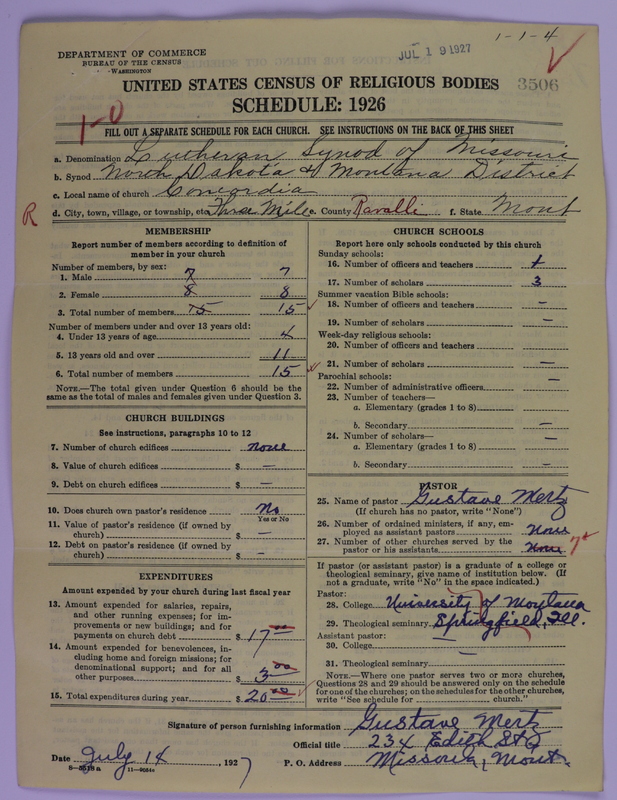 1-1-4
DEPARTMENT OF COMMERCE
BUREAU OF THE CENSUS
WASHINGTON
JUL 19 1927
UNITED STATES CENSUS OF RELIGIOUS BODIES
3506
SCHEDULE: 1926
1-0
FILL OUT A SEPARATE SCHEDULE FOR EACH CHURCH. SEE INSTRUCTIONS ON THE BACK OF THIS SHEET
a. Denomination Lutheran Synod of Missouri
b. Synod North Dakota & Montana District
c. Local name of church Concordia
d. City, town, village, or township, etc. Three Mile e. County Ravalli f. State Mont
R
MEMBERSHIP
Report number of members according to definition of
member in your church
Number of members, by sex:
1. Male 7 7
2. Female 8 8
3. Total number of members 15 15
Number of members under and over 13 years old:
4. Under 13 years of age 4
5. 13 years old and over 11
6. Total number of members 15
NOTE.—The total given under Question 6 should be the
same as the total of males and females given under Question 3.
CHURCH BUILDINGS
See instructions, paragraphs 10 to 12
7. Number of church edifices none
8. Value of church edifices $ —
9. Debt on church edifices $ —
10. Does church own pastor's residence No
Yes or No
11. Value of pastor's residence (if owned by
church) $ —
12. Debt on pastor's residence (if owned by
church) $ —
EXPENDITURES
Amount expended by your church during last fiscal year
13. Amount expended for salaries, repairs,
and other running expenses; for im-
provements or new buildings; and for
payments on church debt $ 17 00
14. Amount expended for benevolences, in-
cluding home and foreign missions; for
denominational support; and for all
other purposes $ 3 00
15. Total expenditures during year $ 20 00
CHURCH SCHOOLS
Report here only schools conducted by this church
Sunday schools:
16. Number of officers and teachers 1
17. Number of scholars 3
Summer vacation Bible schools:
18. Number of officers and teachers —
19. Number of scholars —
Week-day religious schools:
20. Number of officers and teachers
21. Number of scholars —
Parochial schools:
22. Number of administrative officers —
23. Number of teachers—
a. Elementary (grades 1 to 8)
b. Secondary —
24. Number of scholars—
a. Elementary (grades 1 to 8) —
b. Secondary —
PASTOR
25. Name of pastor Gustave Mertz
(If church has no pastor, write "None")
26. Number of ordained ministers, if any, em-
ployed as assistant pastors None
27. Number of other churches served by the
pastor or his assistants None
If pastor (or assistant pastor) is a graduate of a college or
theological seminary, give name of institution below. (If
not a graduate, write "No" in the space indicated.)
Pastor:
28. College University of Montana
29. Theological seminary Springfield, Ill.
Assistant pastor:
30. College —
31. Theological seminary —
NOTE.—Where one pastor serves two or more churches,
Questions 28 and 29 should be answered only on the schedule
for one of the churches; on the schedules for the other churches,
write "See schedule for church."
Signature of person furnishing information Gustave Mertz
Official title 234 Edith St
Date July 14, 1927 P. O. Address Missoula, Mont.
8—5518a 11—9664a